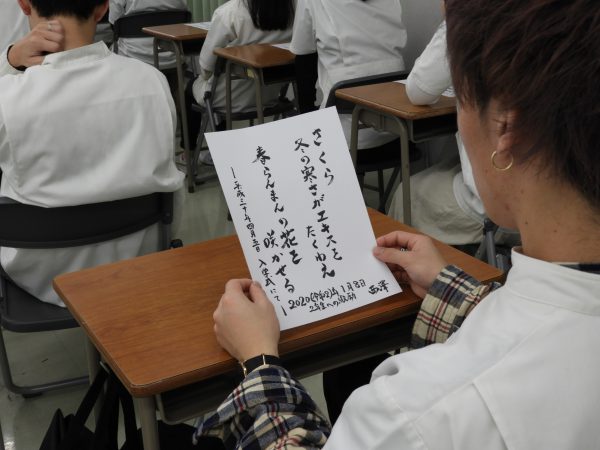 さくら
冬の寒さがエキスを
たくわえ
春らんまんの花を
咲かせる
ー平成三十年四月五日 入学式にてー
2020(令和2)年1月8日 西澤
2年生への